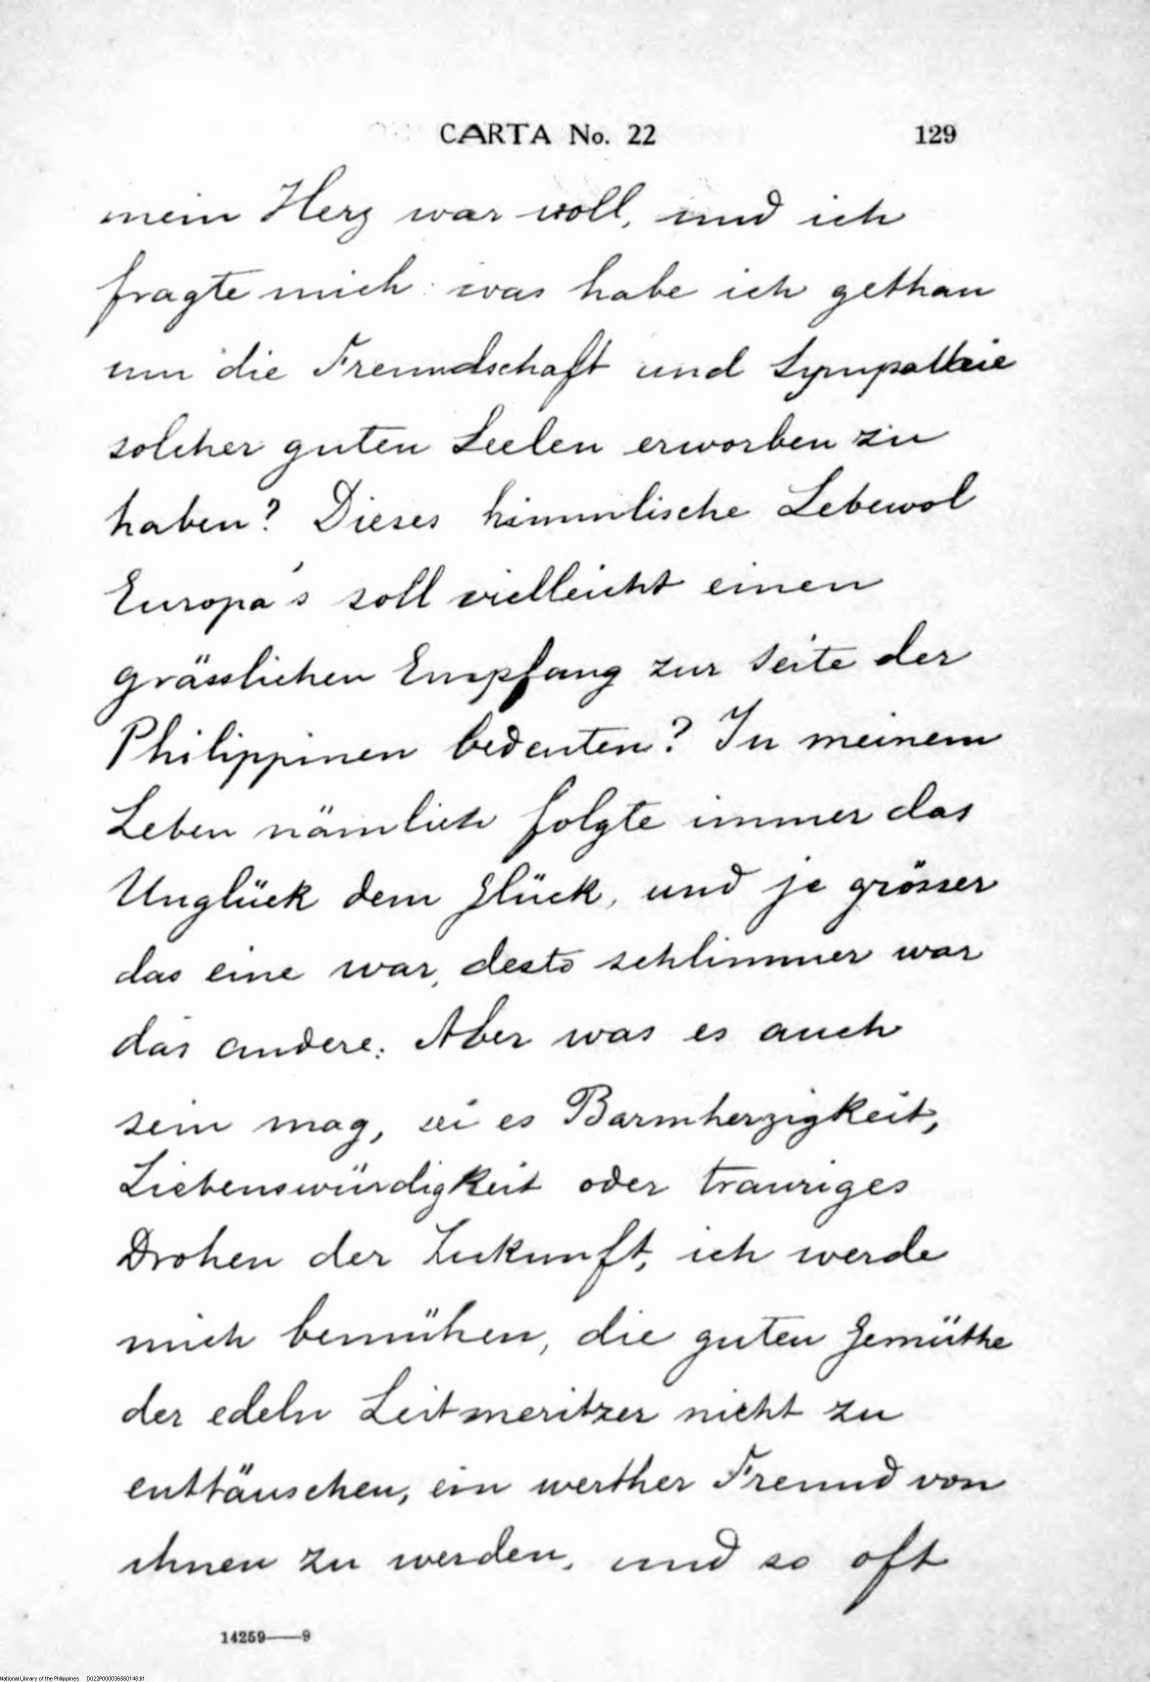 CARTA No. 22 129
mein Herz war voll, und ich
fragte mich: was habe ich gethan
um die Freundschaft und Sympathie
solcher guten Seelen erworben zu
haben? Dieses himmlische Lebewol
Europa's soll vielleicht einen
grässlichen Empfang zur Seite der
Philippinen bedeuten? In meinem
Leben nämlich folgte immer das
Unglück dem Glück, und je grösser
das eine war, desto schlimmer war
das andere. Aber was es auch
sein mag, sei es Barmherzigkeit,
Liebenswürdigkeit oder trauriges
Drohen der Zukunft, ich werde
mich bemühen, die guten Gemüthe
der edeln Leitmeritzer nicht zu
enttäuschen, ein werther Freund von
ihnen zu werden, und so oft
14259——9
National Library of the Philippines